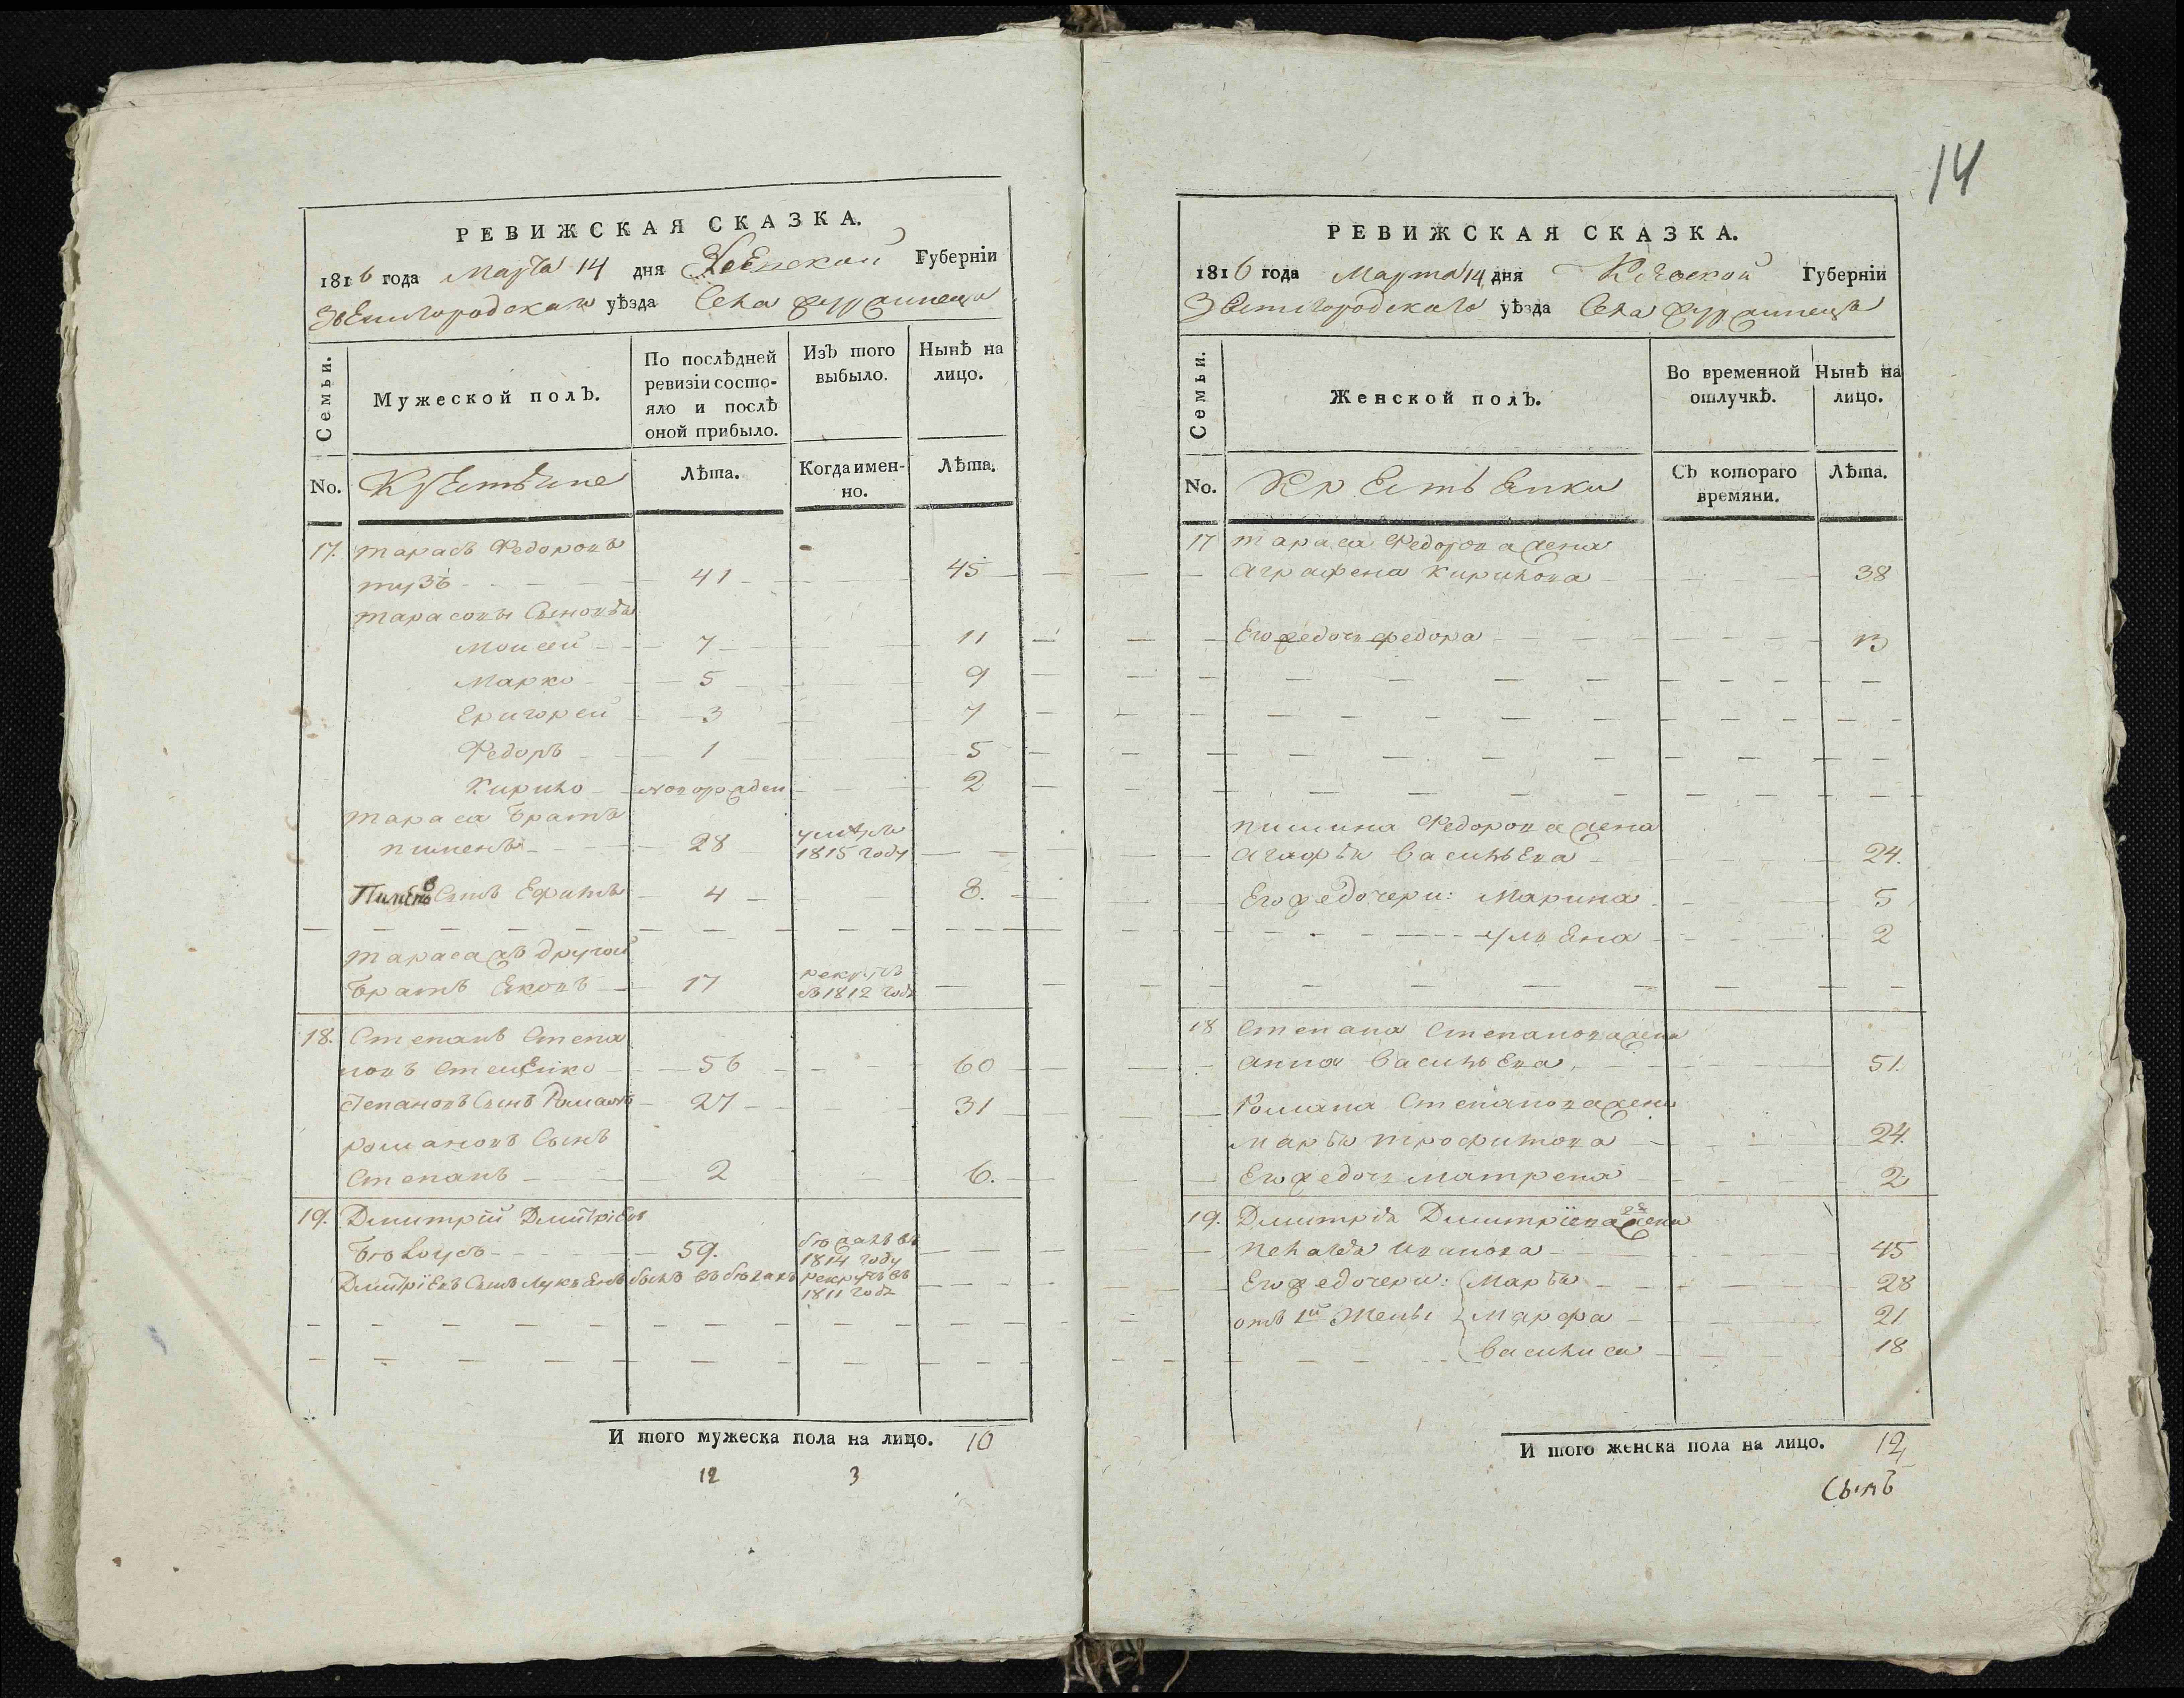 14
РЕВИЖСКАЯ СКАЗКА.
1816 года Марта 14 дня Киевской Губерніи
Звенигородскаго уѣзда Села
Семьи.
Мужеской полъ.
По послѣдней ревизіи состо-
яло и послѣ
оной прибыло.
Изъ того
выбыло.
Нынѣ на
лицо.
No.
Крестьяне
Лѣта.
Когда имен-
но.
Лѣта.
17. Тарасъ Федоровъ
тузъ 41 45
Тарасовы Сыновья
Моисей 7 11
Марко 5 9
Григорей 3 7
Федоръ 1 5
Кирило новорожден 2
Тараса братъ
пименъ 28 умеръ
1815 году
Пименовъ Сынъ Ефимъ 4 8.
Тараса жъ другой
братъ Яковъ 17 рекрутъ
въ 1812 годе
18. Степанъ Степа
новъ 56 60
степановъ Сынъ Романъ 27 31
романовъ Сынъ
Степанъ 2 6.
19. Дмитрій Дмитріевъ
Бѣлоусъ 59. бѣжалъ въ
1814 году
Дмитріевъ Сынъ Лукьянъ былъ въ бѣгахъ рекрутъ въ
1811 годе
И того мужеска пола на лицо. 10
12 3
РЕВИЖСКАЯ СКАЗКА.
1816 года Марта 14 дня Киевской Губерніи
Звенигородскаго уѣзда Села
Семьи.
Женской полъ.
Во временной
отлучкѣ.
Нынѣ на
лицо.
No.
Крестьянки
Съ котораго
времяни.
Лѣта.
17 Тараса Федорова жена
Аграфена Кирилова 38
Его же дочь федора 13
пимина Федорова жена
Агафья Васильева 24.
Его же дочери: Марина 5
ульяна 2
18 Степана Степанова жена
Анна Васильева 51.
Романа Степанова жена
Марья трофимова 24.
Его же дочь матрена 2
19. Дмитрія Дмитріева 2я жена
Пелагея Иванова 45
Его же дочери: Марья 28
отъ 1й Жены Марфа 21
Василиса 18
И того женска пола на лицо. 12
Сынъ